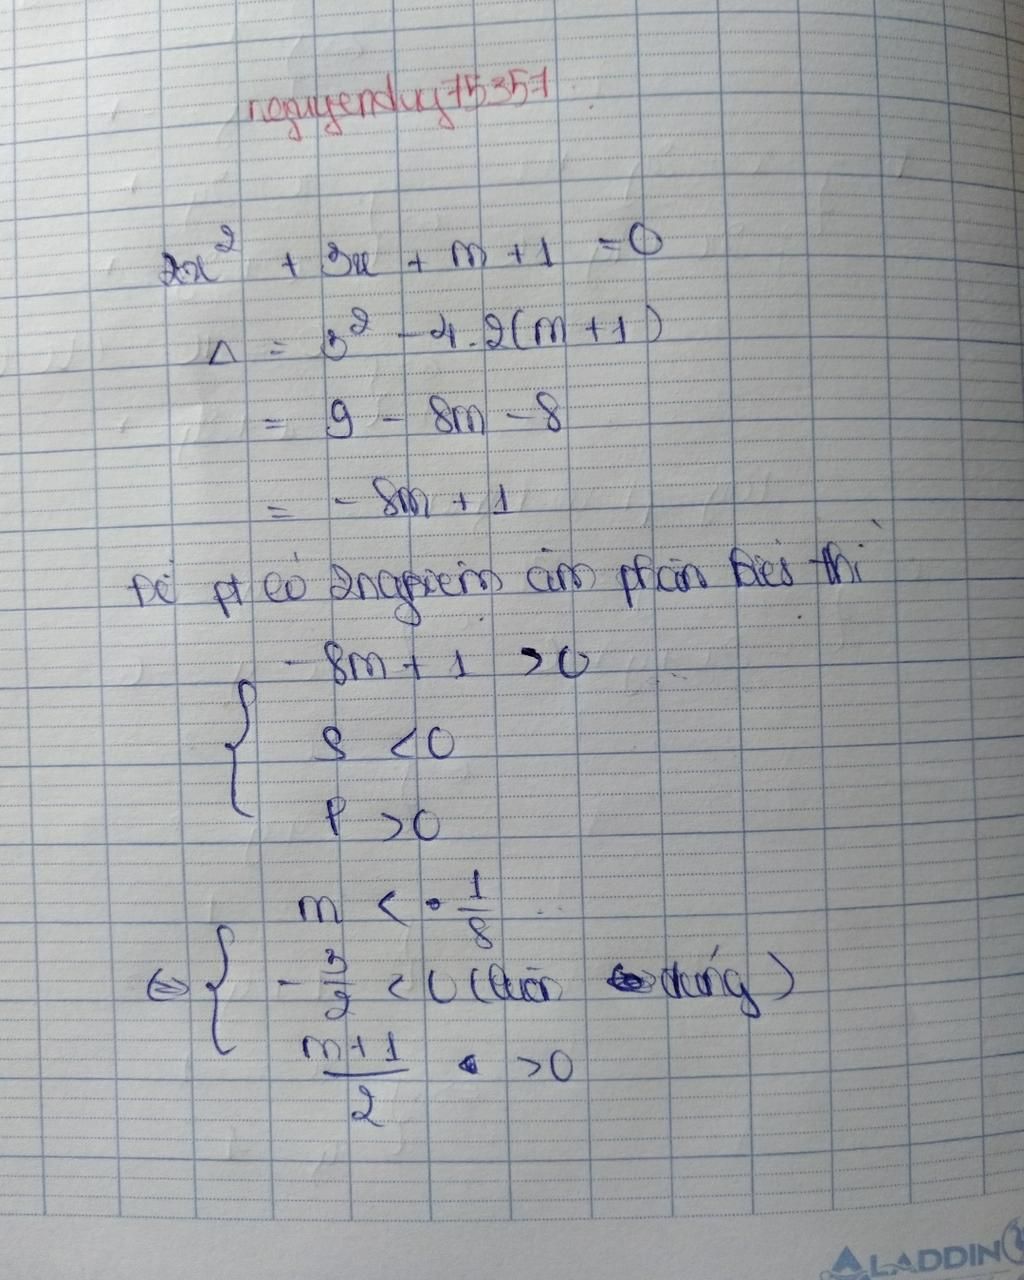 nguyenduy75357
2x² + 3x + m + 1 = 0
Δ = 3² - 4.2(m + 1)
= 9 - 8m - 8
= - 8m + 1
Để pt có 2 nghiệm âm phân biệt thì
{ - 8m + 1 > 0
S < 0
P > 0
m < 1/8
⇔ { - 3/2 < 0 (luôn đúng)
(m + 1)/2 > 0
ALADDIN